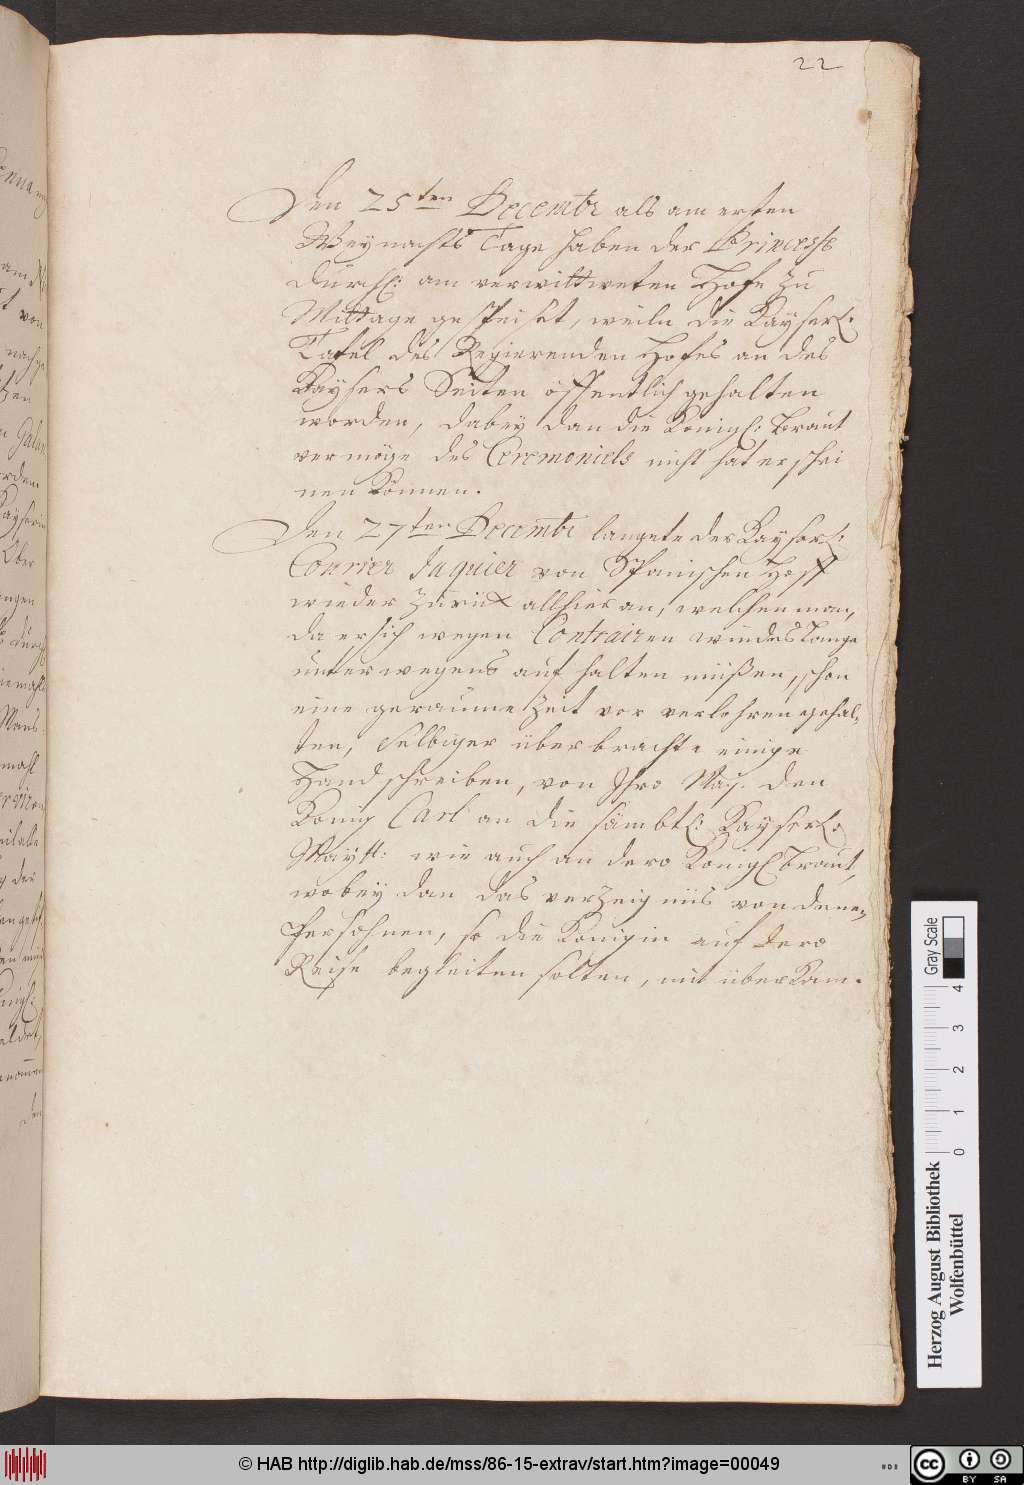 22
Den 25ten Decembr als am ersten
Weynachts Tage haben der Princesse
Dürchl: am verwittweten Hofe zu
Mittage gespeiset, weiln die Kayserl:
Tafel des Regierenden Hofes an des
Kaysers Seiten öffentlich gehalten
worden, dabey dan die Königl: Braut
vermöge des Ceremoniels nicht hat erschei
nen können.
Den 27ten Decembr langete der Kayserl:
Courier Jaquier von Spanischen Hoff
wieder zurük allhier an, welchen man,
da er sich wegen Contrairen windes lange
unterwegens auf halten müßen, schon
eine geraume Zeit vor verlohren gehal-
ten, Selbiger überbrachte einige
Handschreiben, von Ihro May. den
König Carl an die sämbtl: Kayserl:
Maytt: wie auch an dero Königl Braut,
wobey dan das verzeignüs von denen
Persohnen, so die Königin auf dero
Reise begleiten solten, mit überkam.
Gray Scale
0 1 2 3 4
Herzog August Bibliothek
Wolfenbüttel
© HAB http://diglib.hab.de/mss/86-15-extrav/start.htm?image=00049
cc BY SA